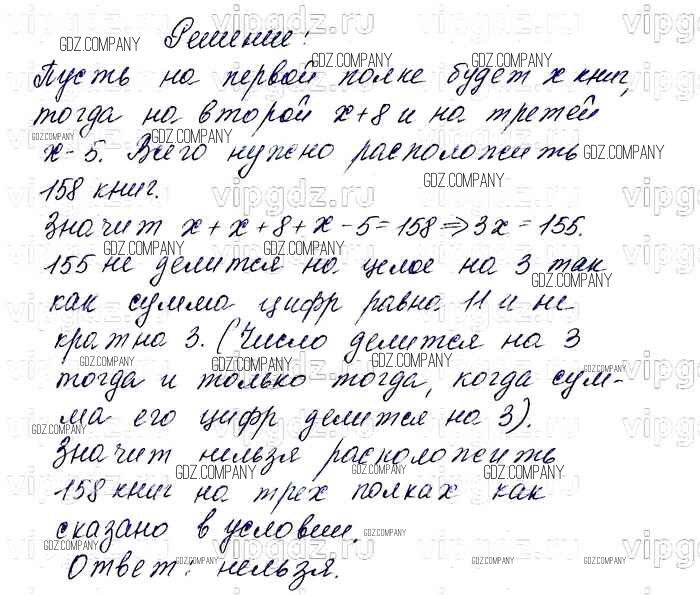 Решение:
Пусть на первой полке будет x книг,
тогда на второй x+8 и на третей
x-5. Всего нужно расположить
158 книг.
Значит x+x+8+x-5=158⇒3x=155.
155 не делится на целое на 3 так
как сумма цифр равна 11 и не
кратна 3. (Число делится на 3
тогда и только тогда, когда сум-
ма его цифр делится на 3).
Значит нельзя расположить
158 книг на трех полках как
сказано в условии.
Ответ: нельзя.